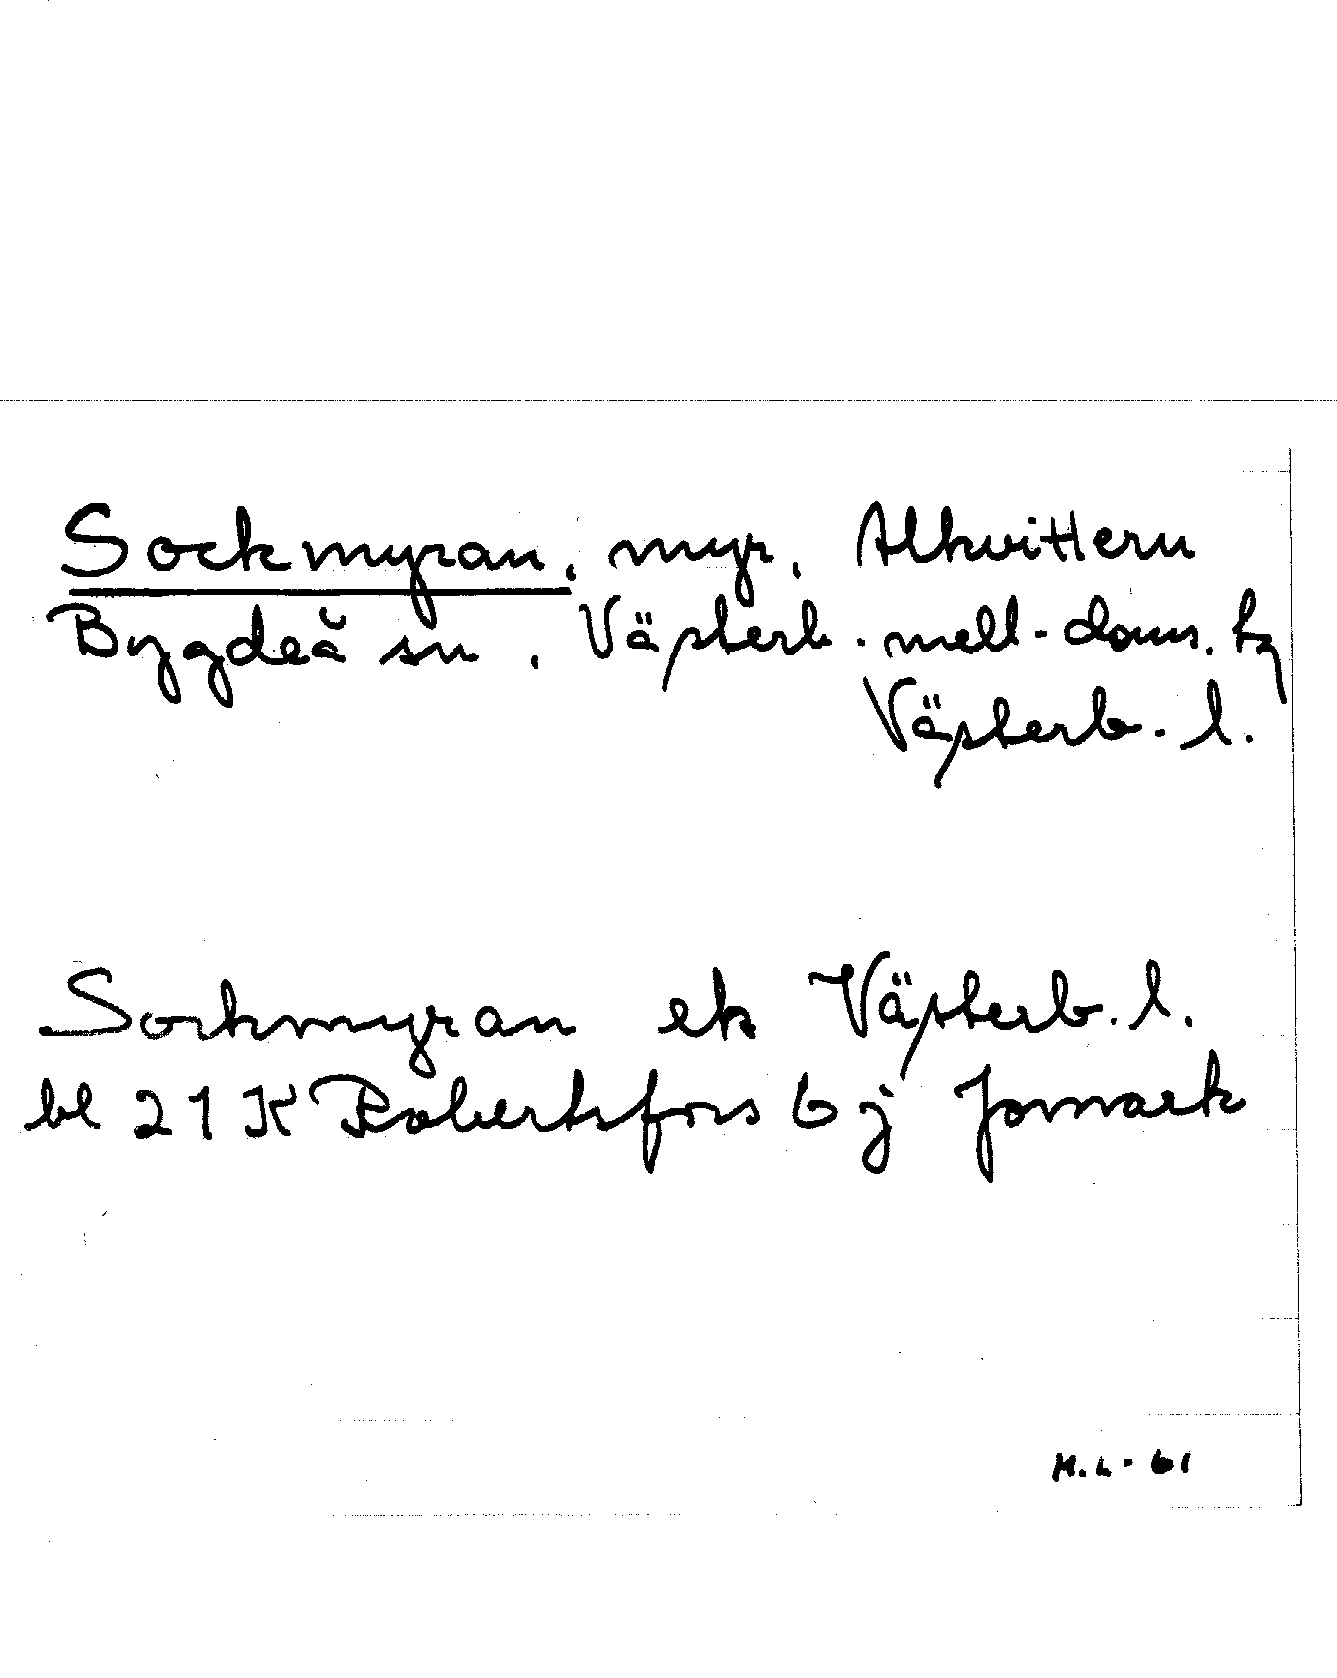 Sockmyran, myr, Alkvittern
Bygdeå sn, Västerb. mell. doms. tg
Västerb. l.
Sockmyran ek Västerb. l.
bl 21K Robertsfors 6j Jomark
H.L. 61